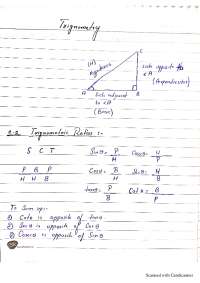 Trignometry
C
(H)
Hypotenuse
side opposite to
∠A
(Perpendicular)
A
B
Side adjacent
to ∠A
(Base)
8.2 Trigonometric Ratios :-
S C T
Sinθ = P/H
Cosecθ = H/P
P B P
H H B
Cosθ = B/H
Secθ = H/B
tanθ = P/B
Cotθ = B/P
To Sum up:-
① Cotθ is opposite of tanθ
② Secθ is opposite of Cosθ
③ Cosecθ is opposite of Sinθ
Scanned with CamScanner